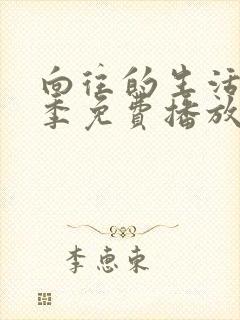 向往的生活
季免费播放
李惠东